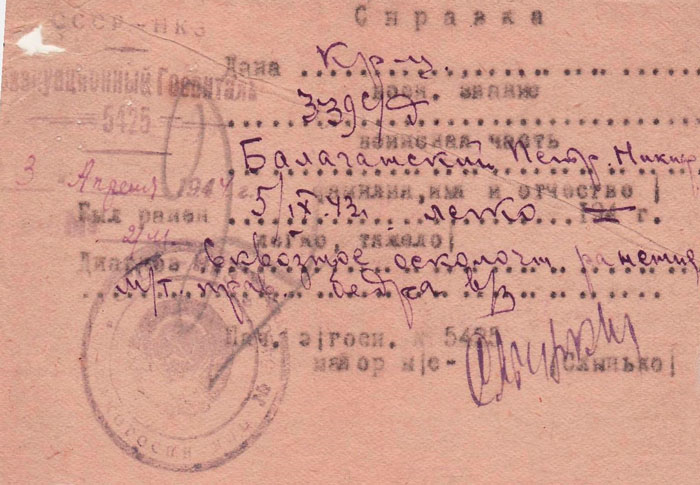 СССР-НКЗ
Справка
Эвакуационный Госпиталь
5425
3 Апреля 1944 г.
Дана Кр-ц.
воен. звание
339 СД
воинская часть
Балагатский Петр. Никиф
фамилия, имя и отчество/
Был ранен 5/IX-43г. легко 194 г.
легко, тяжело/
Диагноз сквозное осколочн ранение
м/т. прав. бедра
Нач. э/госп. № 5425
майор м/с-